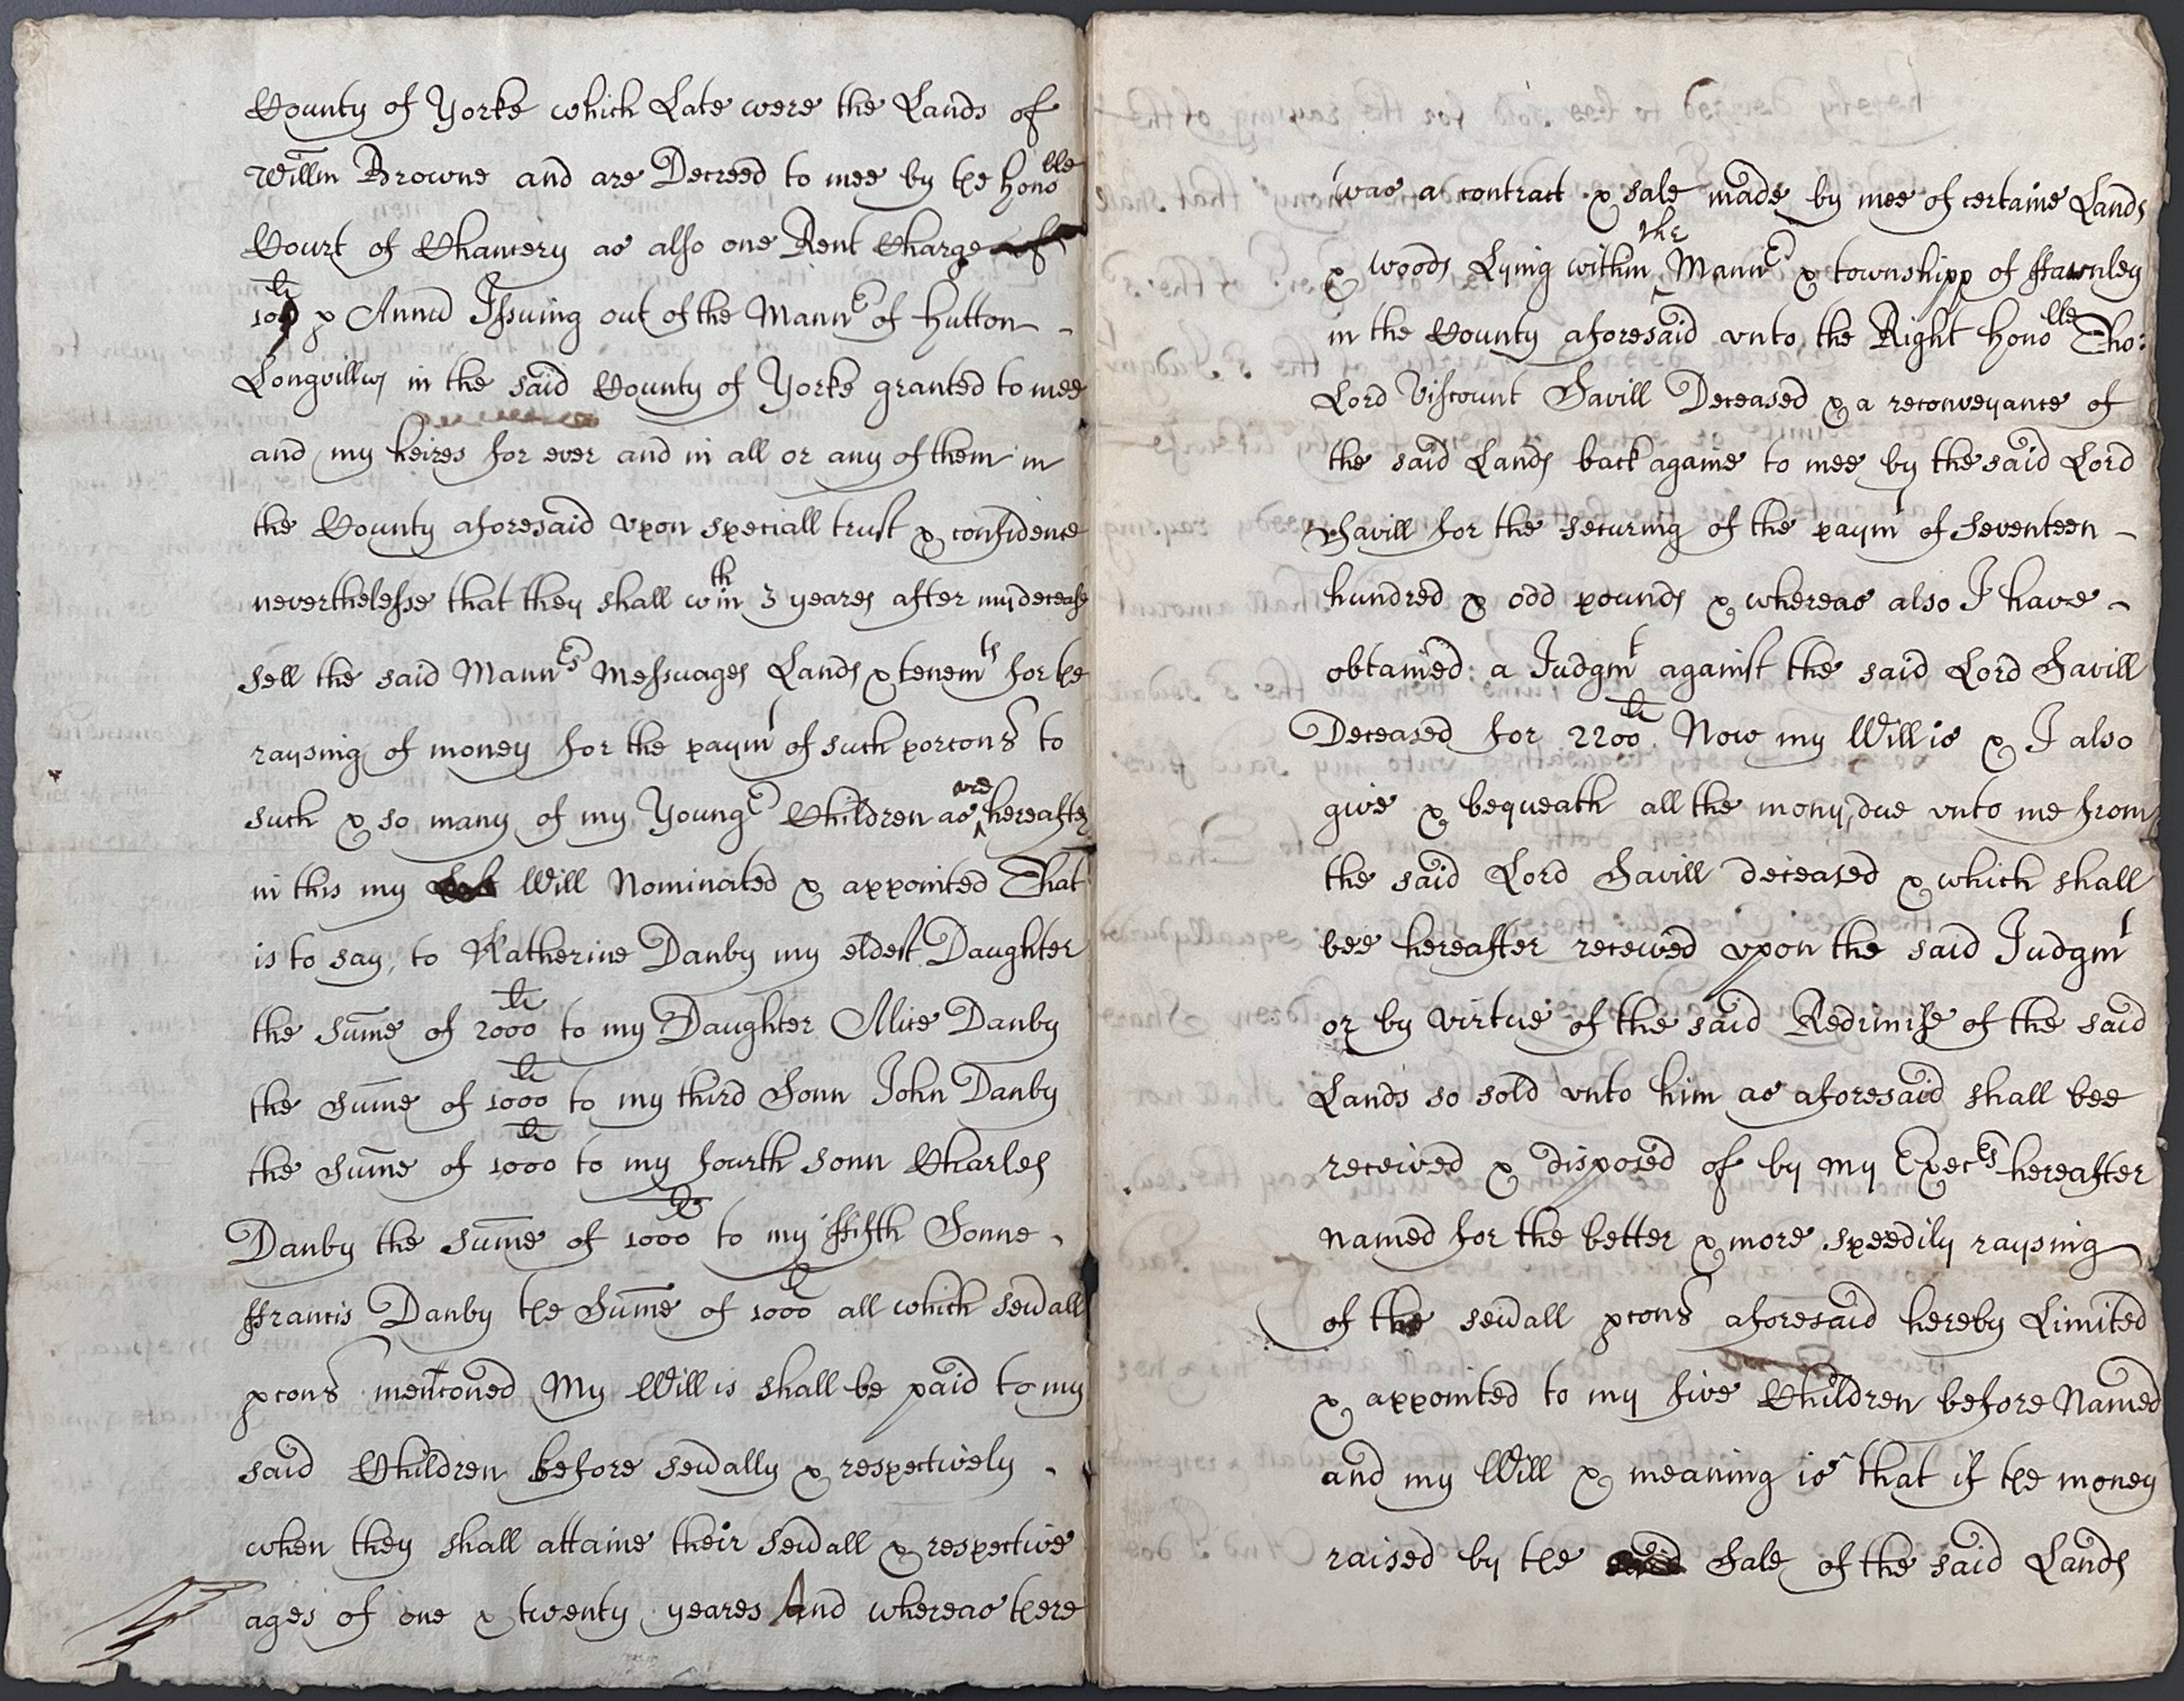 County of Yorke which Late were the Lands of
Willm Browne and are Decreed to mee by the hono^ble
Court of Chancery as also one Rent Charge of
10^li p Annu Issuing out of the Mann^r of hutton
Longvillers in the said County of Yorke granted to mee
and my heires for ever and in all or any of them in
the County aforesaid vpon speciall trust & confidence
neverthelesse that they shall w^th in 3 yeares after my decease
sell the said Mann^rs Messuages Lands & tenem^ts for the
raysing of money for the paym^t of such porcons to
such & so many of my Young^r Children as are hereafter
in this my Will Nominated & appointed That
is to say, to Katherine Danby my eldest Daughter
the sume of 2000^li to my Daughter Alice Danby
the Sume of 1000^li to my third Sonn John Danby
the Sume of 1000^li to my fourth sonn Charles
Danby the sume of 1000^li to my ffifth Sonne
ffrancis Danby the Sume of 1000^li all which sevall
pcons mentconed My Will is shall be paid to my
said Children before sevally & respectively
when they shall attaine their sevall & respective
ages of one & twenty yeares And whereas there
was a contract & sale made by mee of certaine Lands
& woods Lying within the Mann^r & townshipp of ffarnley
in the County aforesaid vnto the Right hono^ble Tho:
Lord Viscount Savill Deceased & a reconveyance of
the said Lands back againe to mee by the said Lord
Savill for the securing of the paym^t of Seventeen
hundred & odd pounds & whereas also I have
obtained: a Judgm^t against the said Lord Savill
Deceased for 2200^li. Now my Will is & I also
give & bequeath all the mony due vnto me from
the said Lord Savill deceased & which shall
bee hereafter received vpon the said Judgm^t
or by virtue of the said Redimise of the said
Lands so sold vnto him as aforesaid shall bee
received & disposed of by my Exec^rs hereafter
named for the better & more speedily raysing
of the sevall pcons aforesaid hereby Limited
& appointed to my five Children before Named
and my Will & meaning is that if the money
raised by the Sale of the said Lands